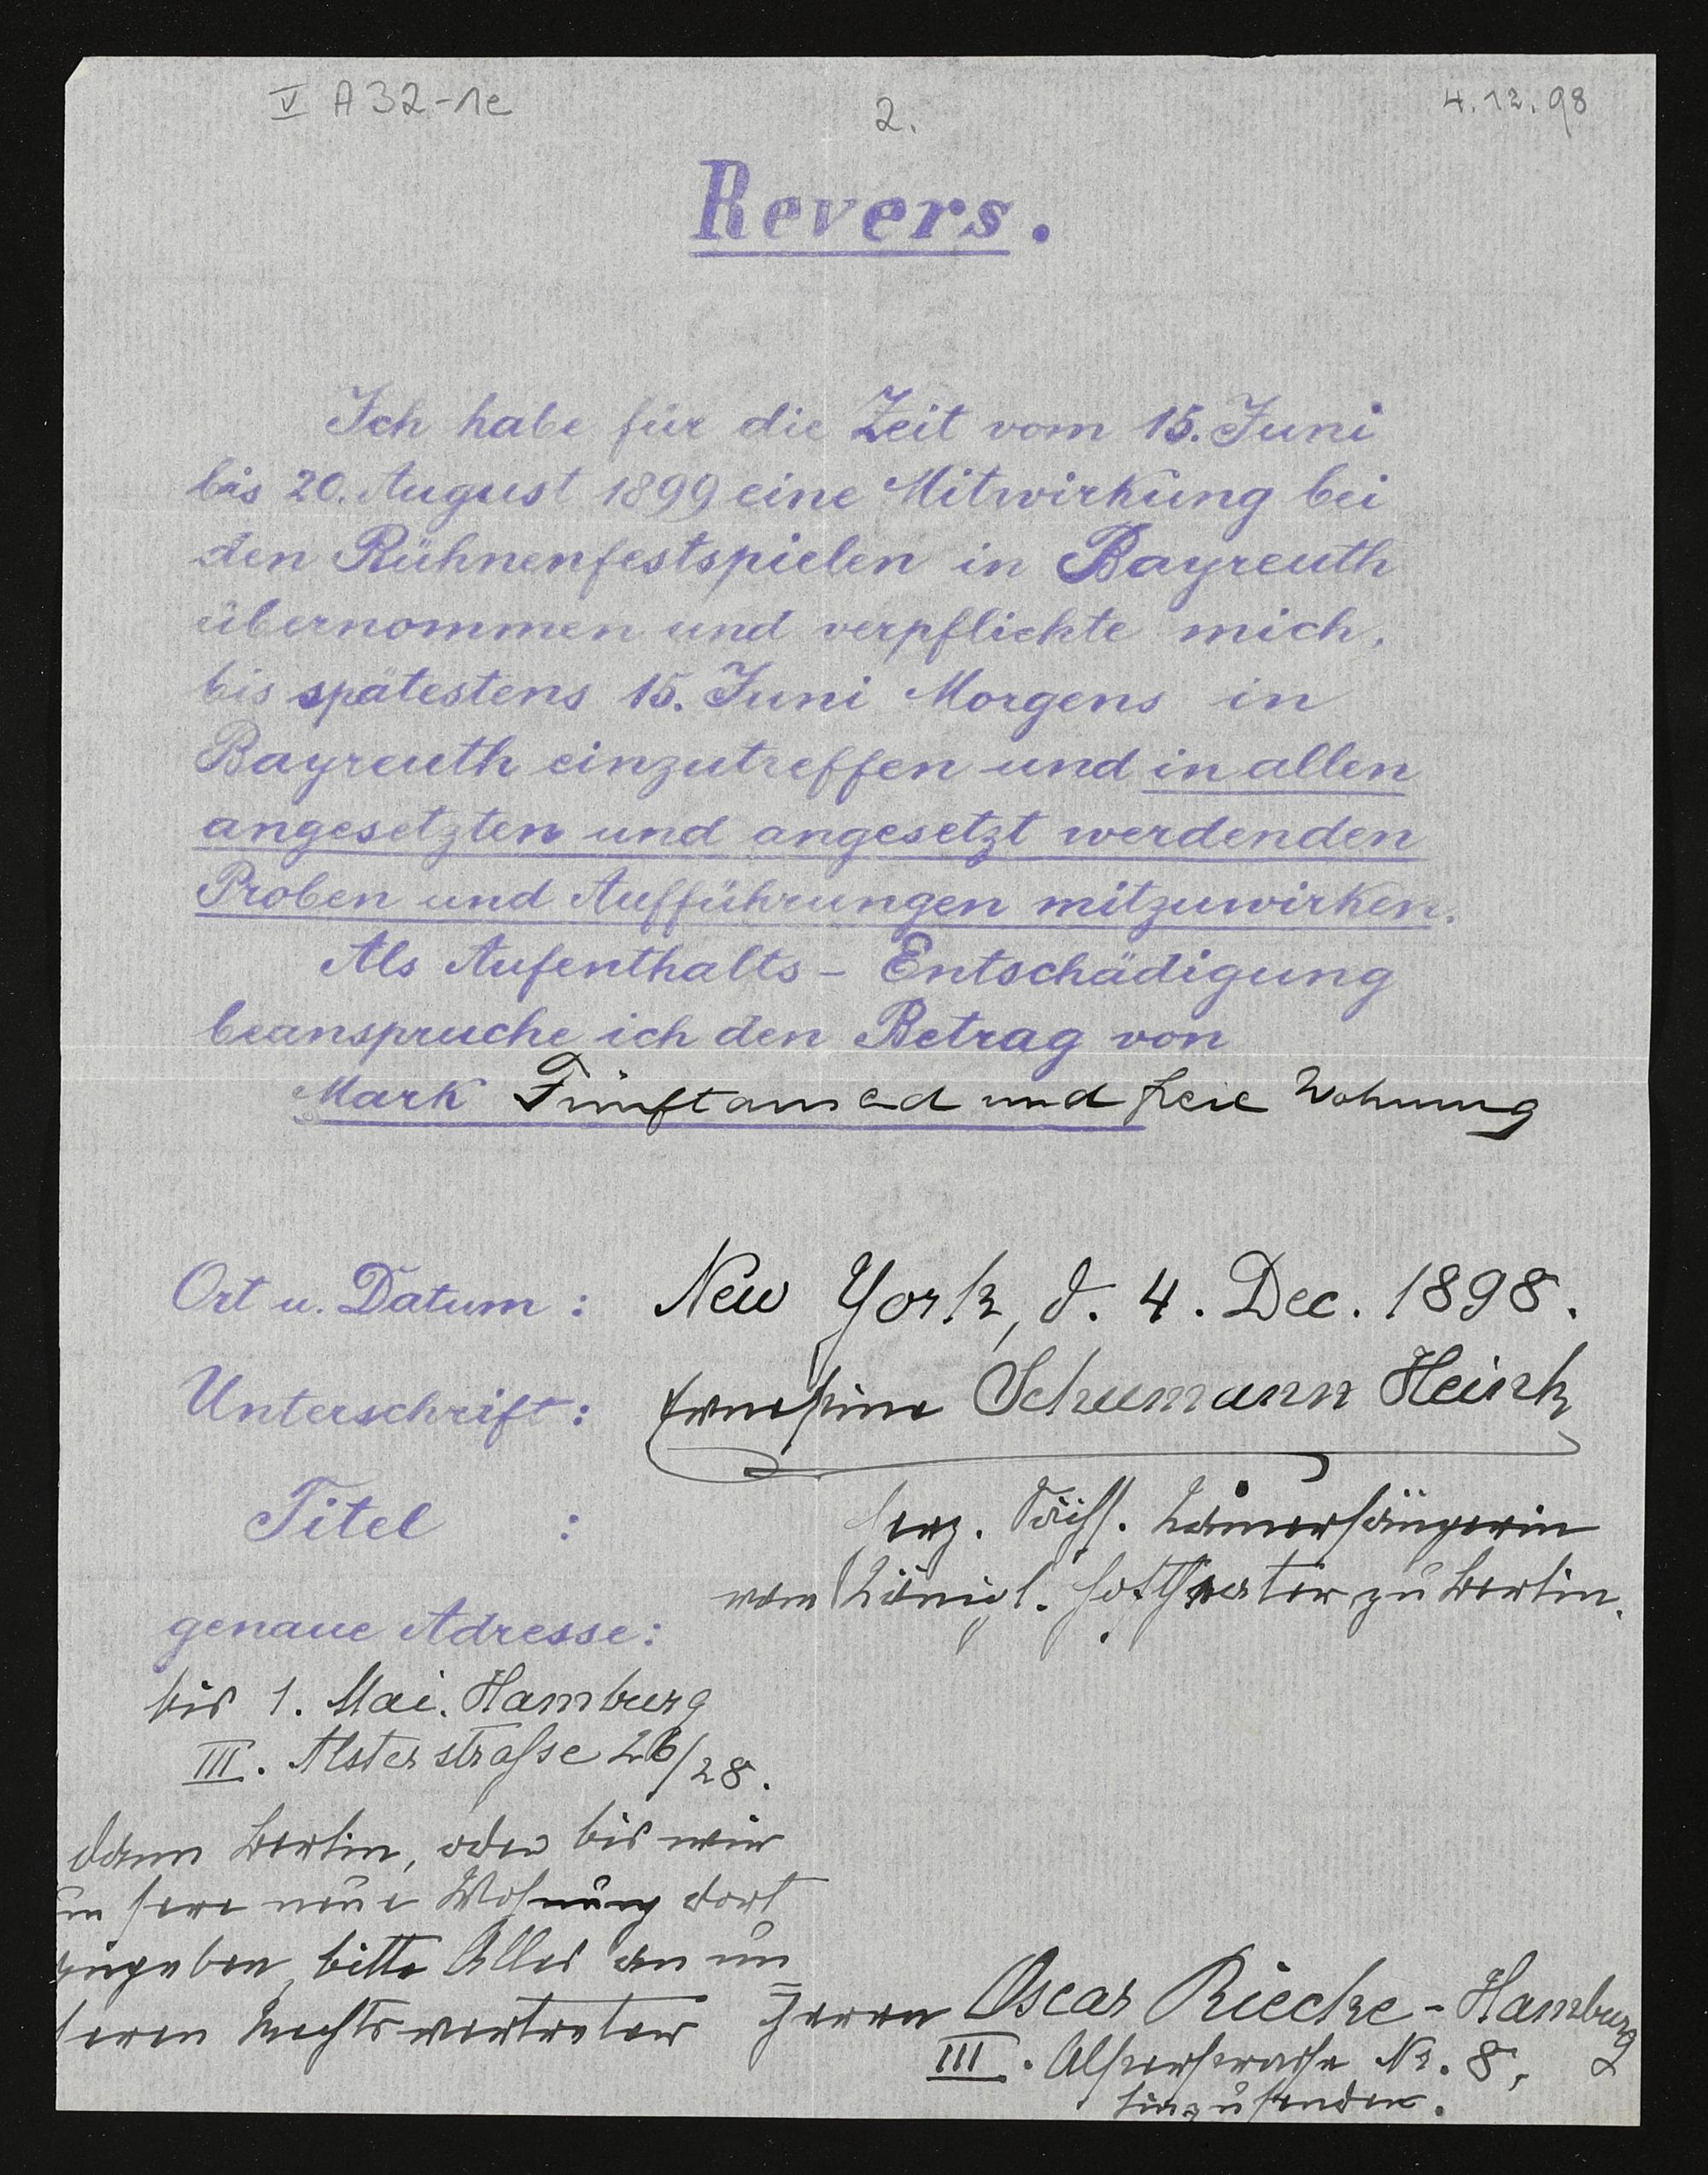 V A 32-1e
2.
4.12.98
Revers.
Ich habe für die Zeit vom 15. Juni
bis 20. August 1899 eine Mitwirkung bei
den Bühnenfestspielen in Bayreuth
übernommen und verpflichte mich,
bis spätestens 15. Juni Morgens in
Bayreuth einzutreffen und in allen
angesetzten und angesetzt werdenden
Proben und Aufführungen mitzuwirken.
Als Aufenthalts-Entschädigung
beanspruche ich den Betrag von
Mark Fünftausend und freie Wohnung
Ort u. Datum: New York, d. 4. Dec. 1898.
Unterschrift: Ernestine Schumann Heink
Titel : Herz. Sächs. Kammersängerin
vom Königl. Hoftheater zu Berlin.
genaue Adresse:
bis 1. Mai. Hamburg
III. Alsterstraße 26/28.
dann Berlin, oder bis wir
unsere neue Wohnung dort
angeben, bitte Alles an un
seren Rechtsvertreter Herrn Oscar Riecke - Hamburg
III. Alsterstraße No. 8,
hinzusenden.